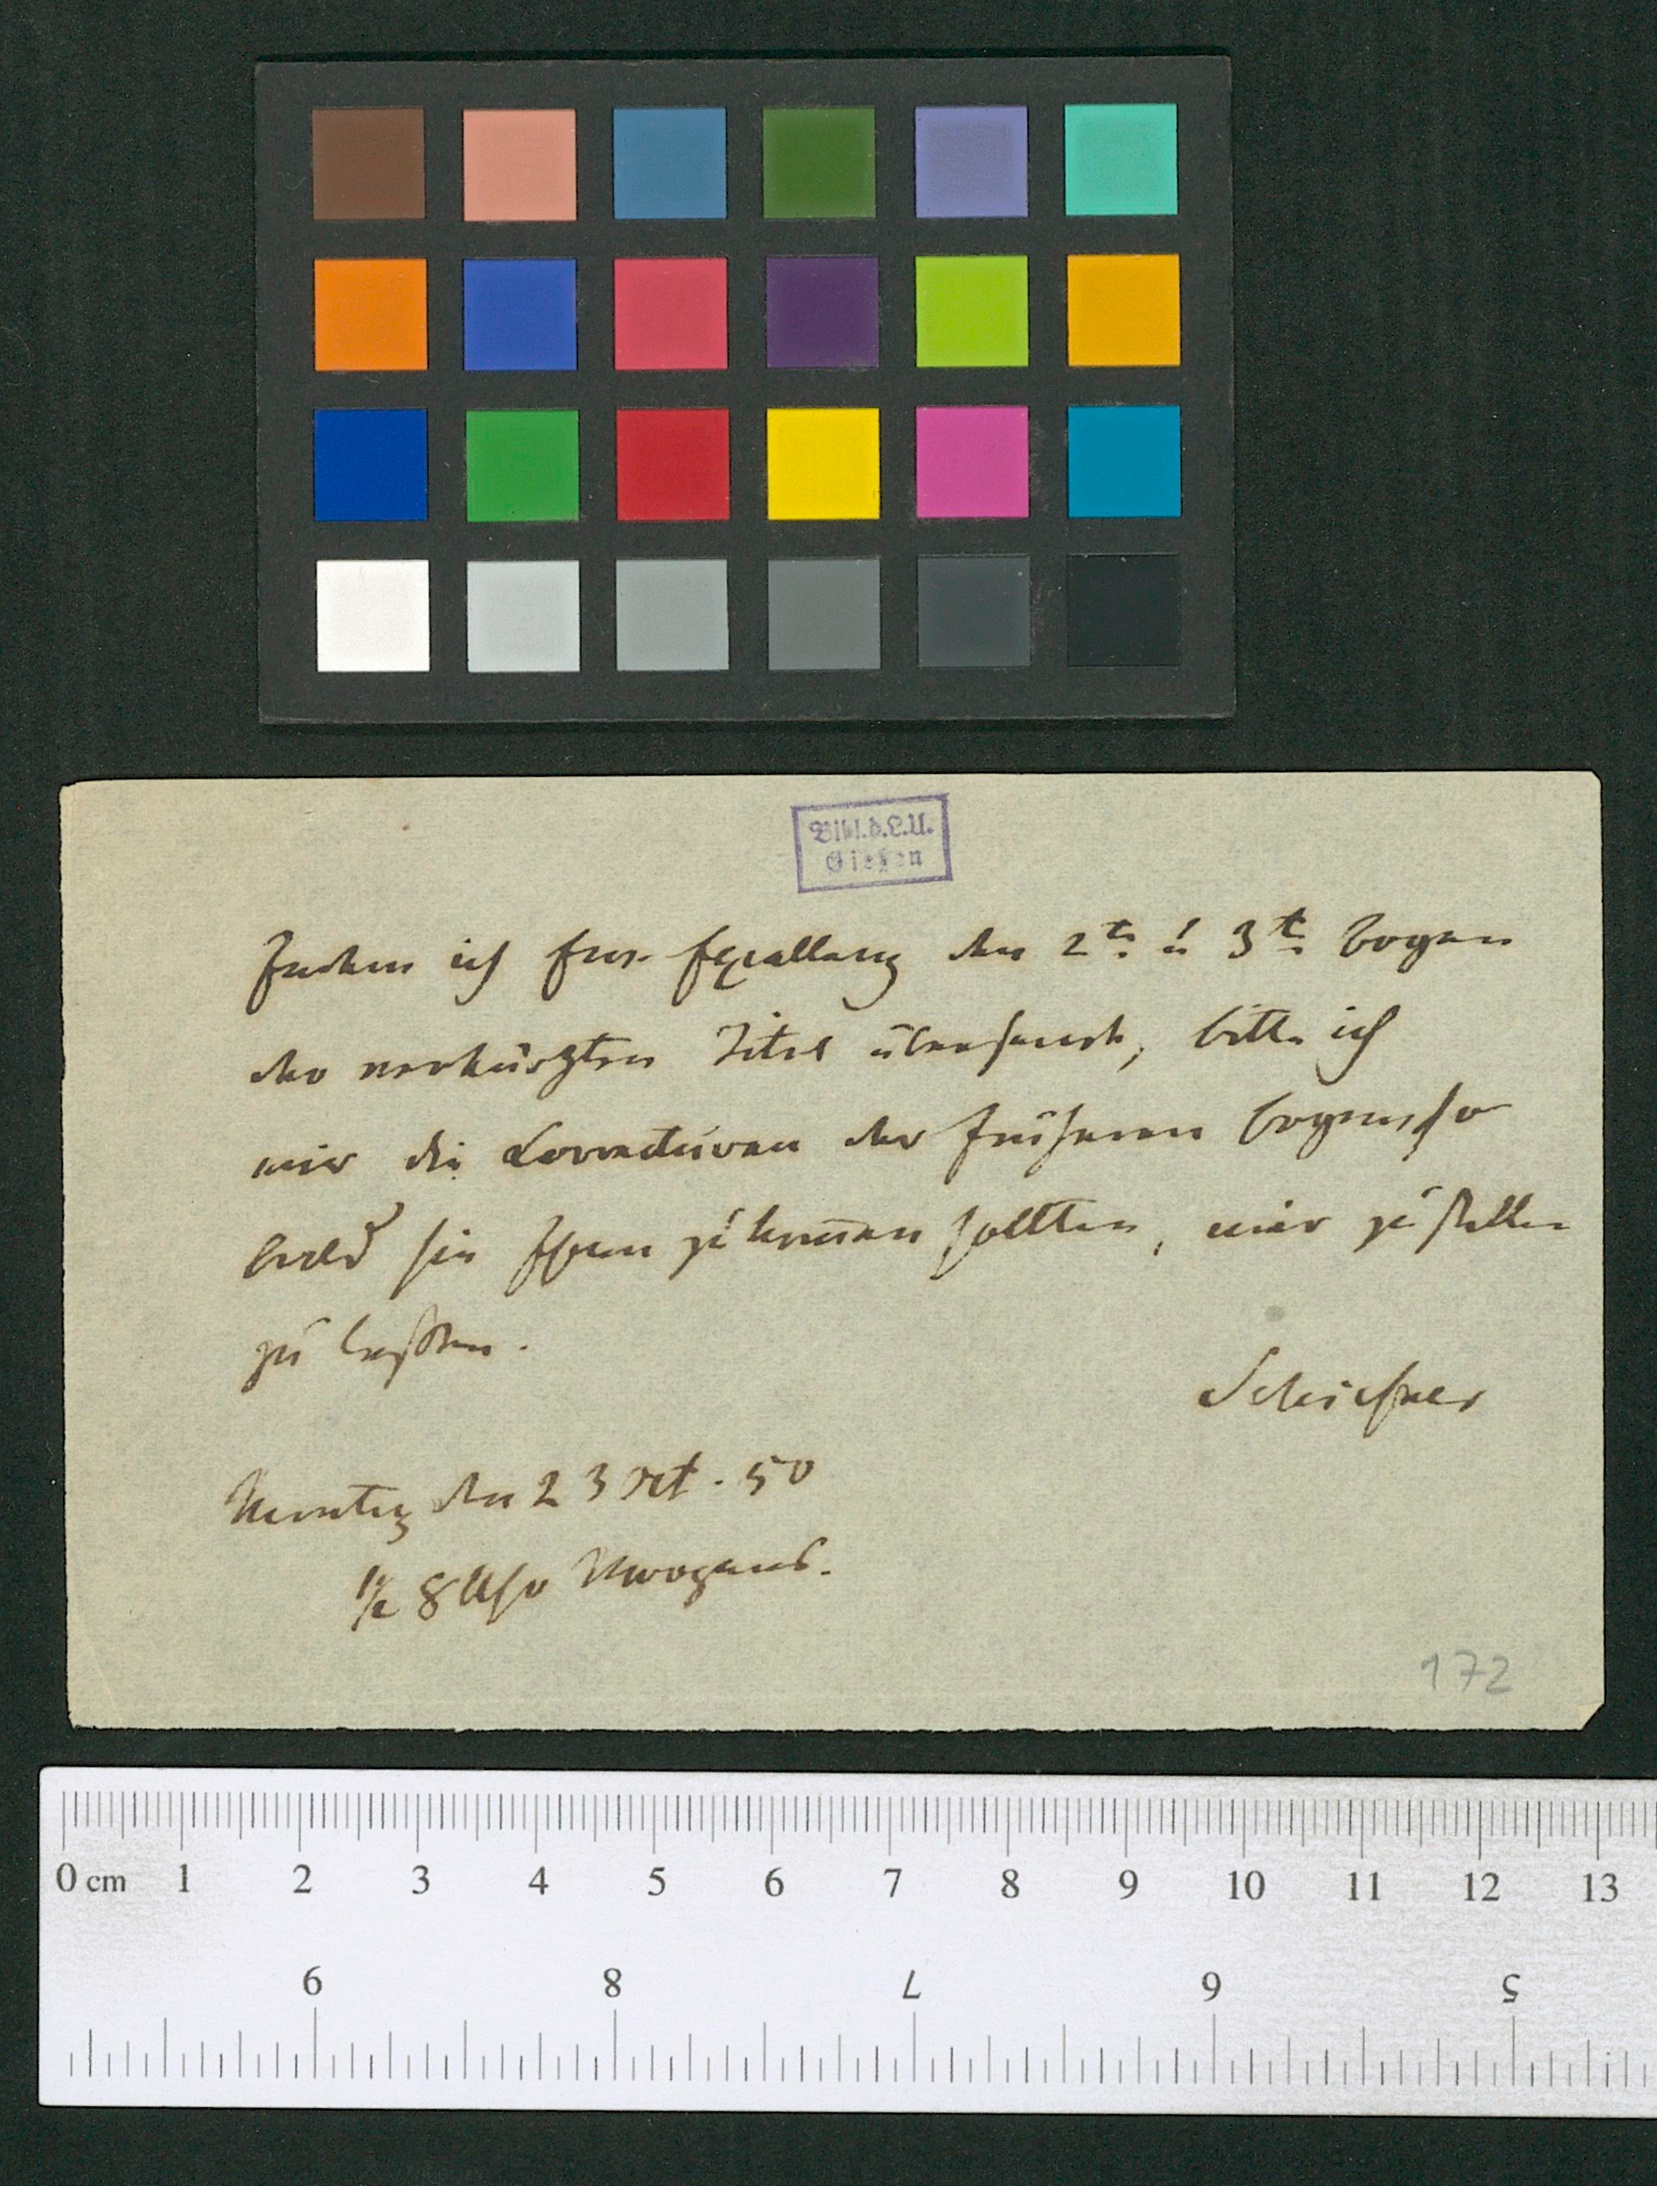 Bibl.d.L.U.
Gießen
Indem ich Eurer Excellenz den 2ten u 3ten Bogen
des verkürzten Titel übersende, bitte ich
mir die Correcturen der früheren Bogen, so
bald sie Ihnen zukommen sollten, mir zustellen
zu lassen.
Schiefner
Montag den 23 Oct. 50
1/2 8 Uhr Morgens.
172
0 cm 1 2 3 4 5 6 7 8 9 10 11 12 13
9 8 7 6 5